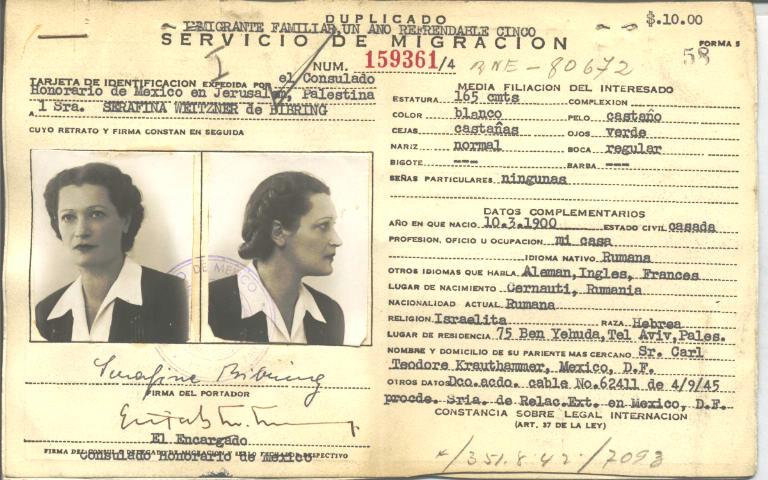 DUPLICADO
$.10.00
INMIGRANTE FAMILIAR, UN AÑO REFRENDABLE CINCO
SERVICIO DE MIGRACION
FORMA 5
58
NUM. 159361/4
RNE-80672
TARJETA DE IDENTIFICACION EXPEDIDA POR el Consulado
Honorario de Mexico en Jerusalem, Palestina
A 1 Sra. SERAFINA WEITZNER de BIBRING
CUYO RETRATO Y FIRMA CONSTAN EN SEGUIDA
DE MEXICO
Serafine Bibring
FIRMA DEL PORTADOR
El Encargado
Consulado Honorario de Mexico
MEDIA FILIACION DEL INTERESADO
ESTATURA 165 cmts COMPLEXION
COLOR blanco PELO castaño
CEJAS castañas OJOS verde
NARIZ normal BOCA regular
BIGOTE --- BARBA ---
SEÑAS PARTICULARES ningunas
DATOS COMPLEMENTARIOS
AÑO EN QUE NACIO 10.3.1900 ESTADO CIVIL casada
PROFESION, OFICIO U OCUPACION mi casa
IDIOMA NATIVO Rumana
OTROS IDIOMAS QUE HABLA Aleman, Ingles, Frances
LUGAR DE NACIMIENTO Cernauti, Rumania
NACIONALIDAD ACTUAL Rumana
RELIGION Israelita RAZA Hebrea
LUGAR DE RESIDENCIA 75 Ben Yehuda, Tel Aviv, Pales.
NOMBRE Y DOMICILIO DE SU PARIENTE MAS CERCANO Sr. Carl
Teodore Krauthammer, Mexico, D.F.
OTROS DATOS Dco.acdo. cable No.62411 de 4/9/45
procde. Sria. de Relac.Ext. en Mexico, D.F.
CONSTANCIA SOBRE LEGAL INTERNACION
(ART. 37 DE LA LEY)
/351.8.42./7093